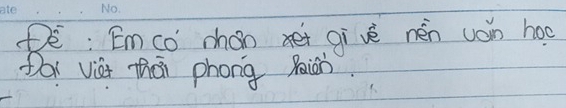 ate . . . No.
Đề : Em có nhận xét gì về nền văn học
Đại Việt thời phong kiến.